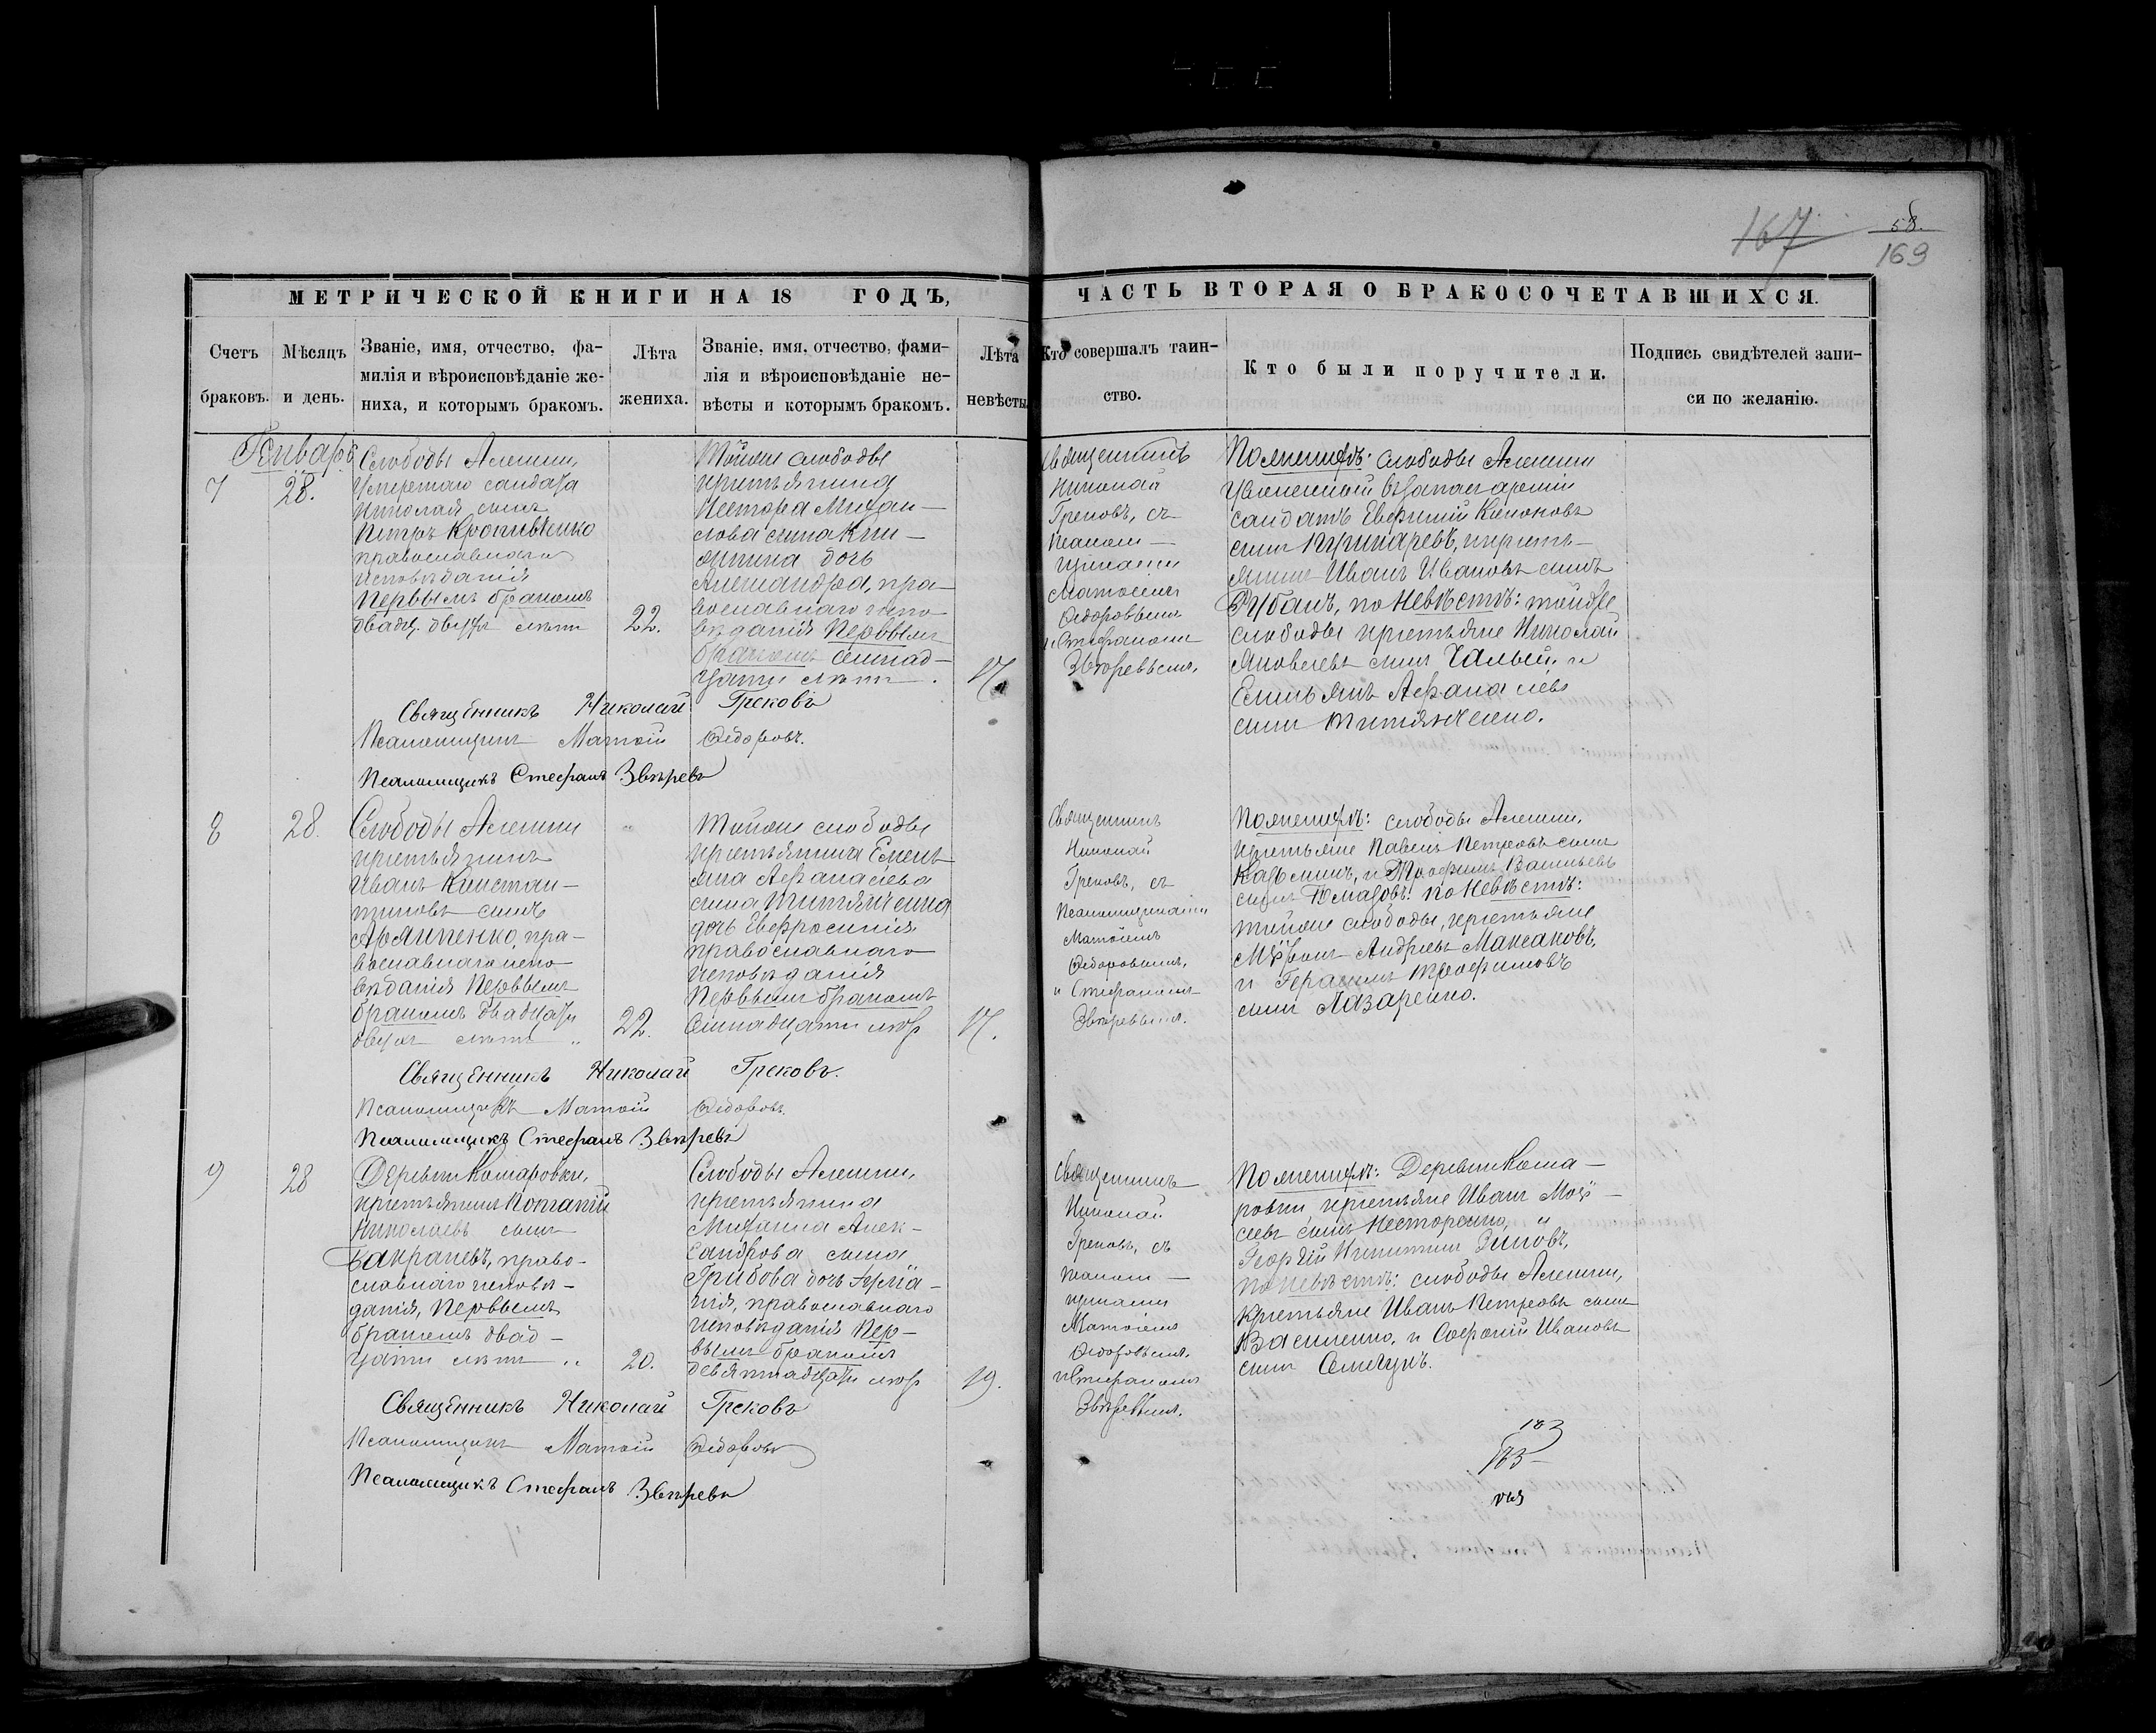 167
58.
169
МЕТРИЧЕСКОЙ КНИГИ НА 18 ГОДЪ,
Счетъ браковъ.
Мѣсяцъ и день.
Званіе, имя, отчество, фа-
милія и вѣроисповѣданіе же-
ниха, и которымъ бракомъ.
Лѣта жениха.
Званіе, имя, отчество, фами-
лія и вѣроисповѣданіе не-
вѣсты и которымъ бракомъ.
Лѣта невѣсты
ЧАСТЬ ВТОРАЯ О БРАКОСОЧЕТАВШИХСЯ.
Кто совершалъ таин-
ство.
Кто были поручители.
Подпись свидѣтелей запи-
си по желанію.
Генварь
7
28.
Слободы Алешни,
умершаго солдата
Николая сынъ
Петръ
православнаго
исповѣданія
первымъ бракомъ
двадц. двухъ лѣтъ
22.
Тойже слободы
крестьянина
Нестора Михаи-
лова сына
дочь
Александра, пра-
вославнаго испо-
вѣданія первымъ
бракомъ семнад-
цати лѣтъ.
17.
Священникъ
Николай
Грековъ, съ
псалом-
щиками
Матѳіемъ
Ѳедоровымъ
и Стефаномъ
Звѣревымъ.
По женихѣ: слободы Алешни
уволенный въ запас арміи
солдатъ Евфимій Кононовъ
сынъ и кресть-
янинъ Иванъ Ивановъ сынъ
Рубанъ, по невѣстѣ: тойже
слободы крестьяне Николай
Яковлевъ сынъ Чалый и
Емельянъ Афанасіевъ
сынъ Титянченко.
Священникъ Николай Грековъ
Псаломщикъ Матѳій Ѳедоровъ.
Псаломщикъ Стефанъ Звѣревъ
8
28.
Слободы Алешни
крестьянинъ
Иванъ Констан-
тиновъ сынъ
пра-
вославнаго испо-
вѣданія первымъ
бракомъ двадцати
двухъ лѣтъ
22.
Тойже слободы
крестьянина Емель-
яна Афанасіева
сына Титянченка
дочь Евфросинія
православнаго
исповѣданія
первымъ бракомъ
семнадцати лѣтъ
17.
Священникъ
Николай
Грековъ, съ
псаломщиками
Матѳіемъ
Ѳедоровымъ,
и Стефаномъ
Звѣревымъ.
По женихѣ: слободы Алешни,
крестьяне Павелъ Петровъ сынъ
и Трофимъ Васильевъ
сынъ по невѣстѣ:
тойже слободы, крестьяне
Андреевъ Максаковъ,
и Герасимъ Трофимовъ
сынъ Лазаренко.
Священникъ Николай Грековъ.
Псаломщикъ Матѳій Ѳедоровъ.
Псаломщикъ Стефанъ Звѣревъ
9
28
Деревни Комаровки,
крестьянинъ
Николаевъ сынъ
право-
славнаго исповѣ-
данія, первымъ
бракомъ двад-
цати лѣтъ
20.
Слободы Алешни,
крестьянина
Михаила Алек-
сандрова сына
Грибова дочь
православнаго
исповѣданія пер-
вымъ бракомъ
девятнадцати лѣтъ
19.
Священникъ
Николай
Грековъ, съ
псалом-
щиками
Матѳіемъ
Ѳедоровымъ,
и Стефаномъ
Звѣревымъ.
По женихѣ: Деревни Кома-
ровки, крестьяне Иванъ Моѵ-
сеевъ сынъ Несторенко, и
Георгій Никитинъ Зиновъ,
по невѣстѣ: слободы Алешни,
крестьяне Иванъ Петровъ сынъ
Василенко, и Софроній Ивановъ
сынъ
Священникъ Николай Грековъ
Псаломщикъ Матѳій Ѳедоровъ
Псаломщикъ Стефанъ Звѣревъ
183
185